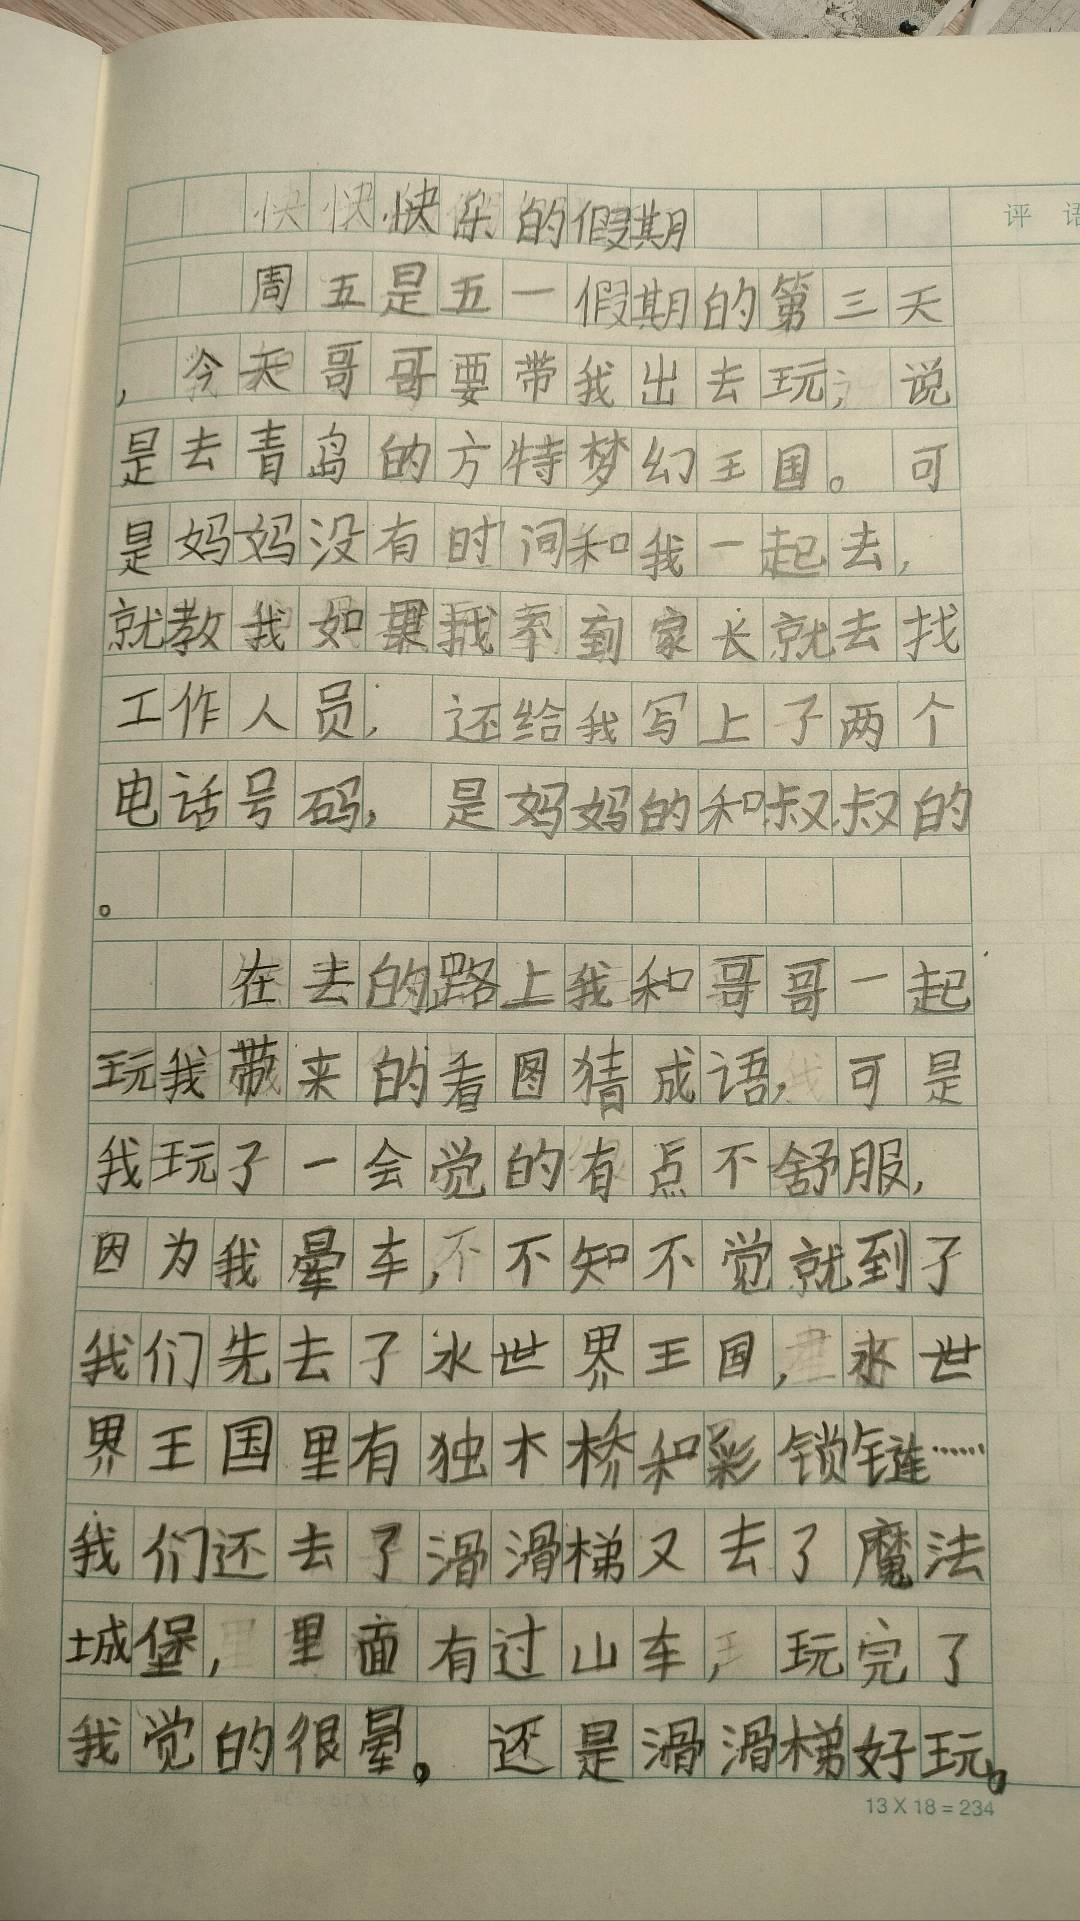 快乐的假期
评语
周五是五一假期的第三天
,今天哥哥要带我出去玩,说
是去青岛的方特梦幻王国。可
是妈妈没有时间和我一起去,
就教我如果找不到家长就去找
工作人员,还给我写上了两个
电话号码,是妈妈的和叔叔的
。
在去的路上我和哥哥一起
玩我带来的看图猜成语,可是
我玩了一会觉的有点不舒服,
因为我晕车,不知不觉就到了
我们先去了水世界王国,水世
界王国里有独木桥和彩锁链……
我们还去了滑滑梯又去了魔法
城堡,里面有过山车,玩完了
我觉的很晕。还是滑滑梯好玩。
13×18=234